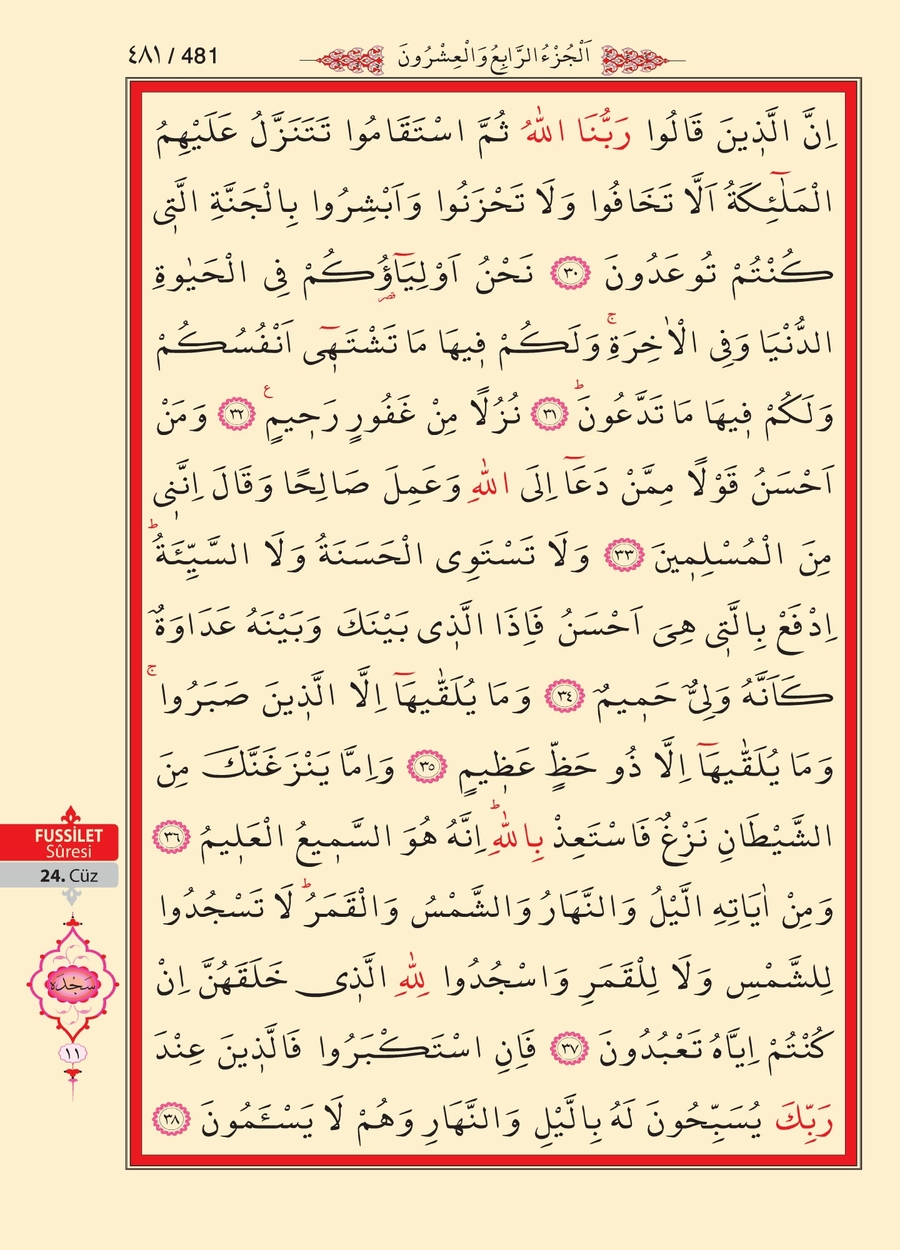 ٤٨١ / 481
اَلْجُزْءُ الرَّابِعُ وَالْعِشْرُونَ
اِنَّ الَّذ۪ينَ قَالُوا رَبُّنَا اللّٰهُ ثُمَّ اسْتَقَامُوا تَتَنَزَّلُ عَلَيْهِمُ
الْمَلٰٓئِكَةُ اَلَّا تَخَافُوا وَلَا تَحْزَنُوا وَاَبْشِرُوا بِالْجَنَّةِ الَّت۪ي
كُنْتُمْ تُوعَدُونَ ﴿٣٠﴾ نَحْنُ اَوْلِيَٓاؤُ۬كُمْ فِي الْحَيٰوةِ
الدُّنْيَا وَفِي الْاٰخِرَةِۚ وَلَكُمْ ف۪يهَا مَا تَشْتَه۪ٓي اَنْفُسُكُمْ
وَلَكُمْ ف۪يهَا مَا تَدَّعُونَۜ ﴿٣١﴾ نُزُلًا مِنْ غَفُورٍ رَح۪يمٍ۟ ﴿٣٢﴾ وَمَنْ
اَحْسَنُ قَوْلًا مِمَّنْ دَعَٓا اِلَى اللّٰهِ وَعَمِلَ صَالِحًا وَقَالَ اِنَّن۪ي
مِنَ الْمُسْلِم۪ينَ ﴿٣٣﴾ وَلَا تَسْتَوِي الْحَسَنَةُ وَلَا السَّيِّئَةُۜ
اِدْفَعْ بِالَّت۪ي هِيَ اَحْسَنُ فَاِذَا الَّذ۪ي بَيْنَكَ وَبَيْنَهُ عَدَاوَةٌ
كَاَنَّهُ وَلِيٌّ حَم۪يمٌ ﴿٣٤﴾ وَمَا يُلَقّٰيهَٓا اِلَّا الَّذ۪ينَ صَبَرُواۚ
وَمَا يُلَقّٰيهَٓا اِلَّا ذُو حَظٍّ عَظ۪يمٍ ﴿٣٥﴾ وَاِمَّا يَنْزَغَنَّكَ مِنَ
الشَّيْطَانِ نَزْغٌ فَاسْتَعِذْ بِاللّٰهِۜ اِنَّهُ هُوَ السَّم۪يعُ الْعَل۪يمُ ﴿٣٦﴾
وَمِنْ اٰيَاتِهِ الَّيْلُ وَالنَّهَارُ وَالشَّمْسُ وَالْقَمَرُۜ لَا تَسْجُدُوا
لِلشَّمْسِ وَلَا لِلْقَمَرِ وَاسْجُدُوا لِلّٰهِ الَّذ۪ي خَلَقَهُنَّ اِنْ
كُنْتُمْ اِيَّاهُ تَعْبُدُونَ ﴿٣٧﴾ فَاِنِ اسْتَكْبَرُوا فَالَّذ۪ينَ عِنْدَ
رَبِّكَ يُسَبِّحُونَ لَهُ بِالَّيْلِ وَالنَّهَارِ وَهُمْ لَا يَسْـَٔمُونَ ﴿٣٨﴾
FUSSİLET
Sûresi
24. Cüz
سَجْدَه
١١